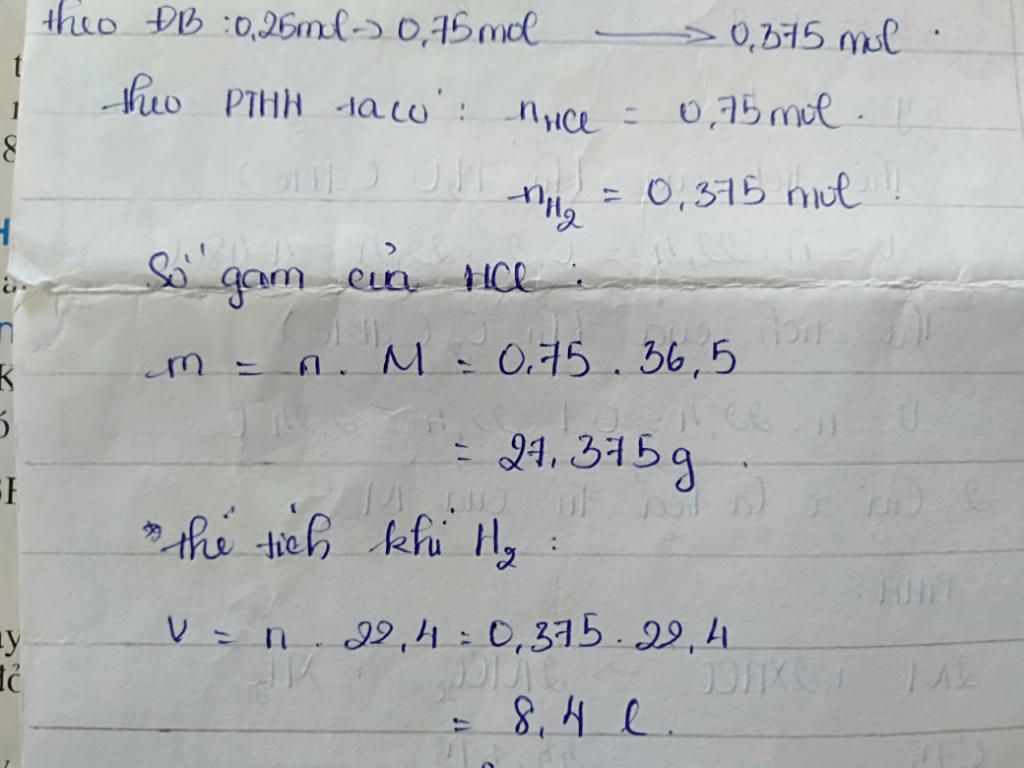 theo ĐB : 0,25mol -> 0,75mol —> 0,375 mol .
theo PTHH ta có : nHCl = 0,75mol .
nH2 = 0,375 mol .
Số gam của HCl :
m = n . M = 0,75 . 36,5
= 27,375g .
* thể tích khí H2 :
V = n . 22,4 = 0,375 . 22,4
= 8,4 l .